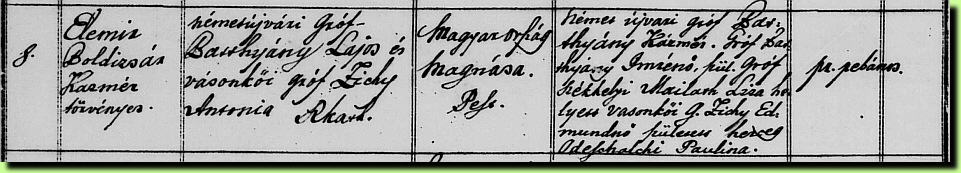 8.
Elemir
Boldizsár
Kazmér
törvényes.
németújvári Gróf
Batthyány Lajos és
vásonkői gróf Zichy
Antonia R kath.
Magyar ország
Magnása.
Pest.
Német újvari gróf Bat-
thyány Kázmér. Gróf Bat
thyány Imrené, szül. Gróf
Székhelyi Mailath Liza he
lyett vasonkői G. Zichy Ed-
mundné születess herceg
Odeschalchi Paulina.
pr. pebános.